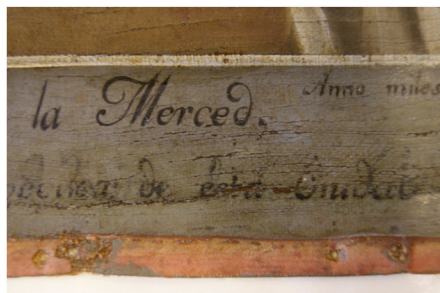 la Merced. Anno miles
de esta Ciudad